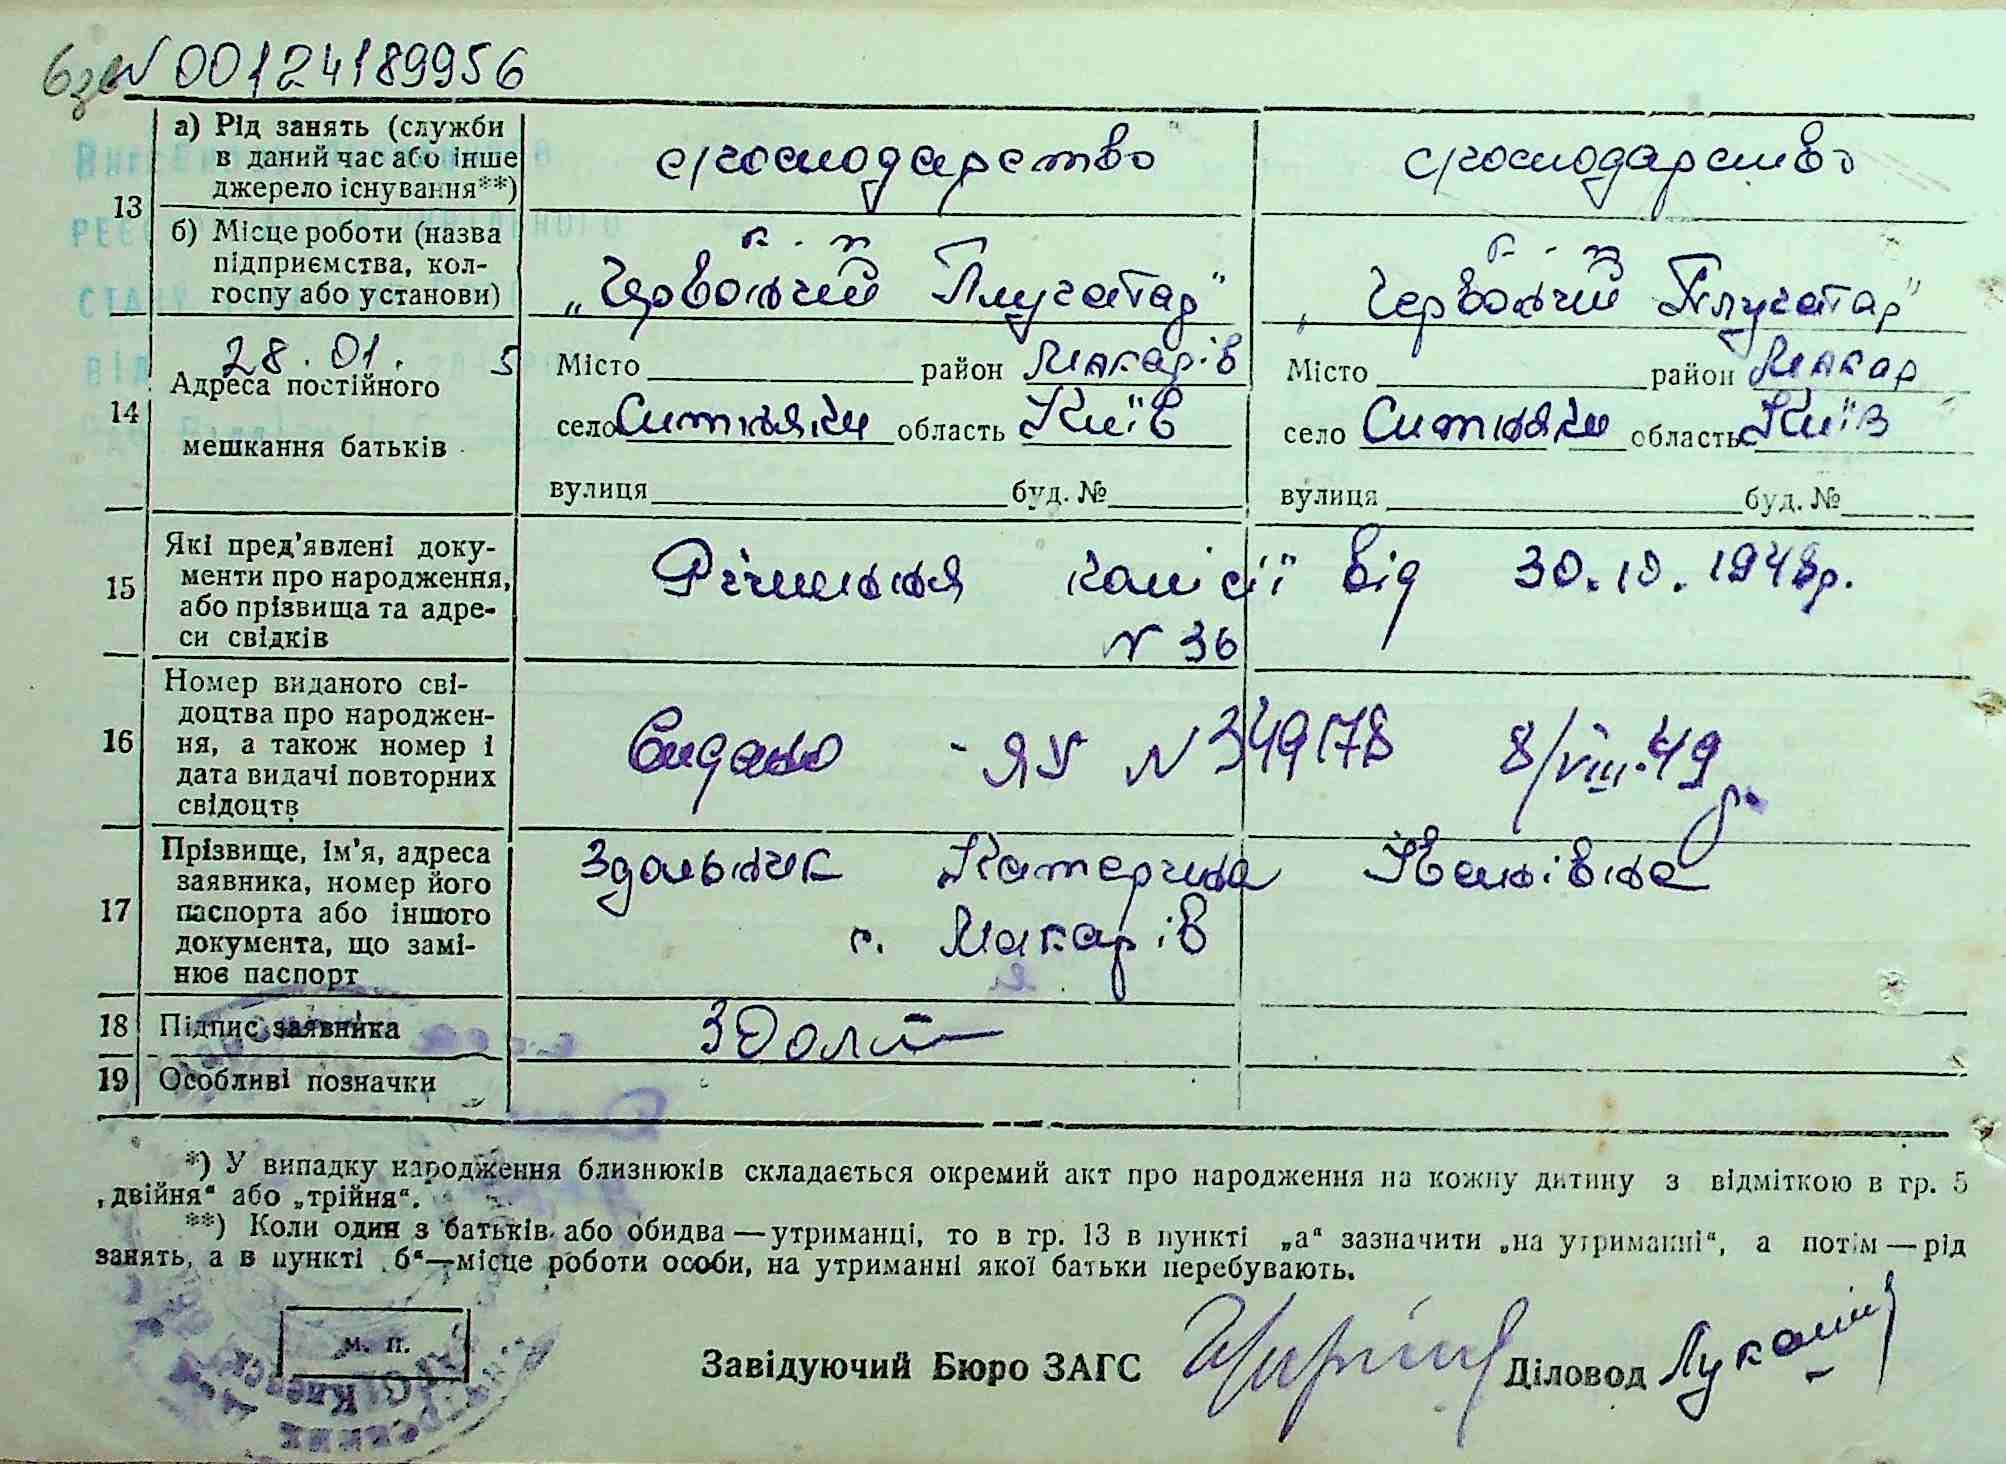 N 00124189956
13 а) Рід занять (служби в даний час або інше джерело існування**) с/господарство с/господарство
б) Місце роботи (назва підприємства, колгоспу або установи) к-п „Червоний Плугатар" к-п „Червоний Плугатар"
28.01. 5
14 Адреса постійного мешкання батьків
Місто район Макарів Місто район Макар
село Ситняки область Київ село Ситняки область Київ
вулиця буд. № вулиця буд. №
15 Які пред'явлені документи про народження, або прізвища та адреси свідків Рішення комісії від 30.10.1948р.
N 36
16 Номер виданого свідоцтва про народження, а також номер і дата видачі повторних свідоцтв Видано - ЯУ N 349178 8/VIII.49р.
17 Прізвище, ім'я, адреса заявника, номер його паспорта або іншого документа, що замінює паспорт Катерина Іванівна
с. Макарів
18 Підпис заявника
19 Особливі позначки
*) У випадку народження близнюків складається окремий акт про народження на кожну дитину з відміткою в гр. 5
„двійня“ або „трійня“.
**) Коли один з батьків або обидва — утриманці, то в гр. 13 в пункті „а“ зазначити „на утриманні“, а потім — рід
занять, а в пункті б“—місце роботи особи, на утриманні якої батьки перебувають.
м. п.
Завідуючий Бюро ЗАГС Діловод